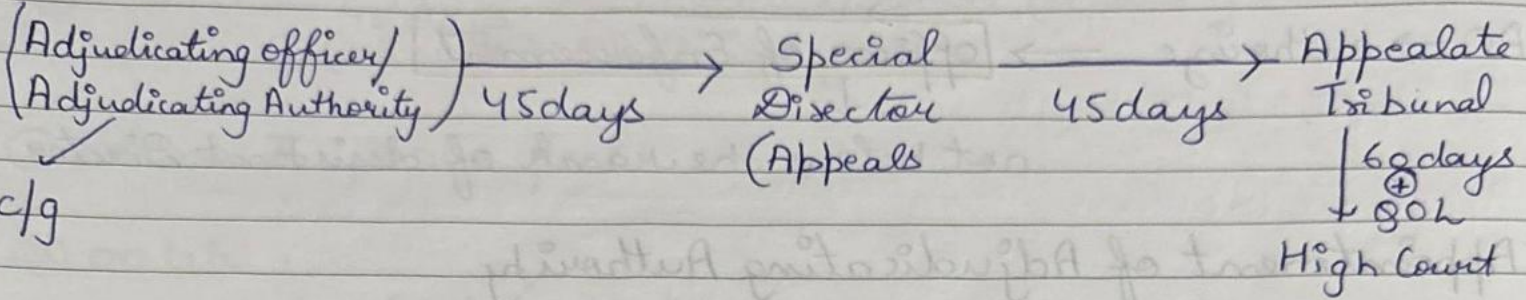 (Adjudicating officer/ Adjudicating Authority) 45 days → Special Director (Appeals 45 days → Appealate Tribunal
c/g
60 days
+
QOL
High Court